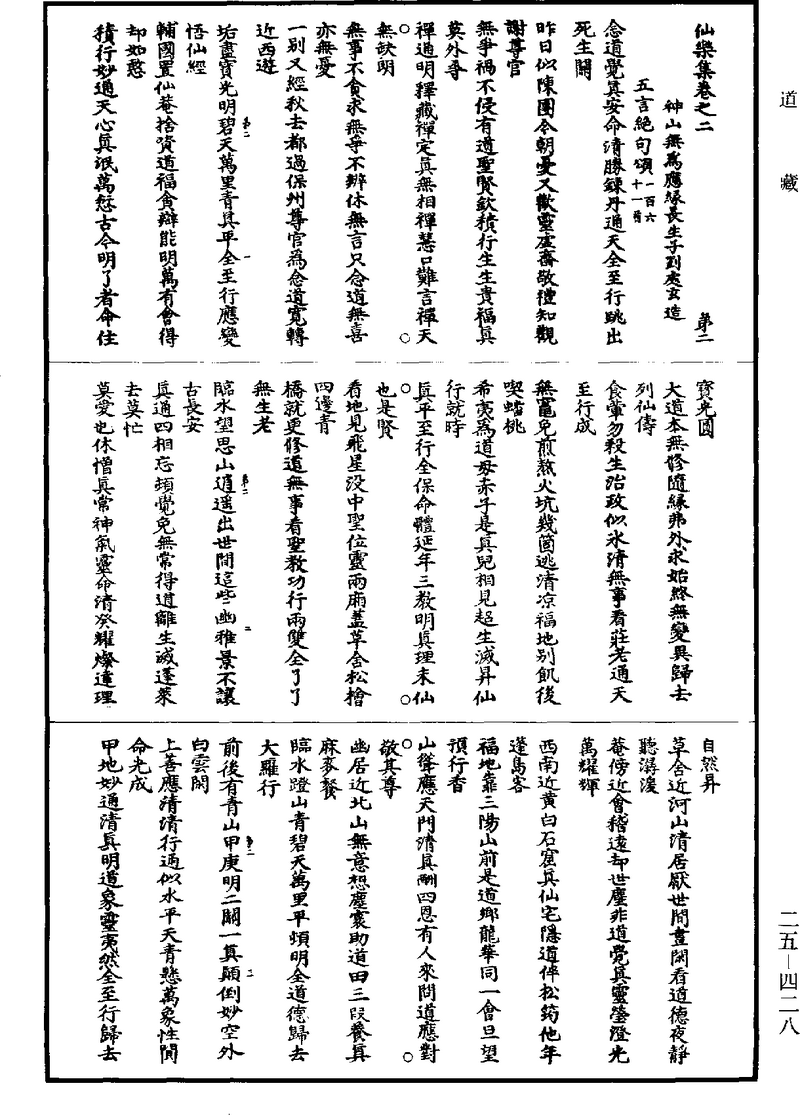 道藏
仙樂集卷之二 第二
神山無為應緣長生子劉處玄造
五言絕句頌一百六十一首
念道覺真安命清勝鍊丹通天全至行跳出
死生關
昨日似陳團今朝憂又歡靈虛齋敬禮知觀
謝尊官
無爭禍不侵有道聖賢欽積行生生貴福真
莫外尋
禪通明釋藏禪定真無相禪慧口難言禪天
無缺朗
無事不貪求無爭不辯休無言只念道無喜
亦無憂
一別又經秋去都過保州尊官為念道寬轉
近西遊
垢盡寶光明碧天萬里青真平全至行應變
悟仙經
輔國置仙菴捨資道福貪辯能明萬有會得
却如憨
積行妙通天心真泯萬愆古今明了者命住
寶光圓
大道本無修隨緣弗外求始終無變異歸去
列仙儔
食葷勿殺生治政似水清無事看莊老通天
至行成
無竈免煎熬火坑幾箇逃清凉福地別飢後
喫蟠桃
希夷為道母赤子是真兒相見超生滅昇仙
行就時
真平至行全保命體延年三教明真理未仙
也是賢
看地見飛星没中聖位靈兩廂蓋草舍松檜
四邊青
橋就更修道無事看聖教功行兩雙全了了
無生老
臨水望思山逍遥出世間這些幽雅景不讓
古長安
真通四相忘頓覺免無常得道離生滅蓬萊
去莫忙
莫愛也休憎真常神氣靈命清癸耀燦達理
自然昇
草舍近河山清居厭世間晝閑看道德夜靜
聽潺湲
菴傍近會稽遠却世塵非道覺真靈瑩澄光
萬耀輝
西南近黄白石窟真仙宅隱道伴松筠他年
蓬島客
福地靠三陽山前是道鄉龍華同一會旦望
預行香
山聳應天門清真酬四恩有人來問道應對
敬其尊
幽居近北山無意想塵寰助道田三段養真
麻麥餐
臨水蹬山青碧天萬里平頓明全道德歸去
大羅行
前後有青山甲庚明二關一真顛倒妙空外
白雲閑
上善應清清行通似水平天青懸萬象性閒
命光成
甲地妙通清真明道象靈夷然全至行歸去
二五—四二八